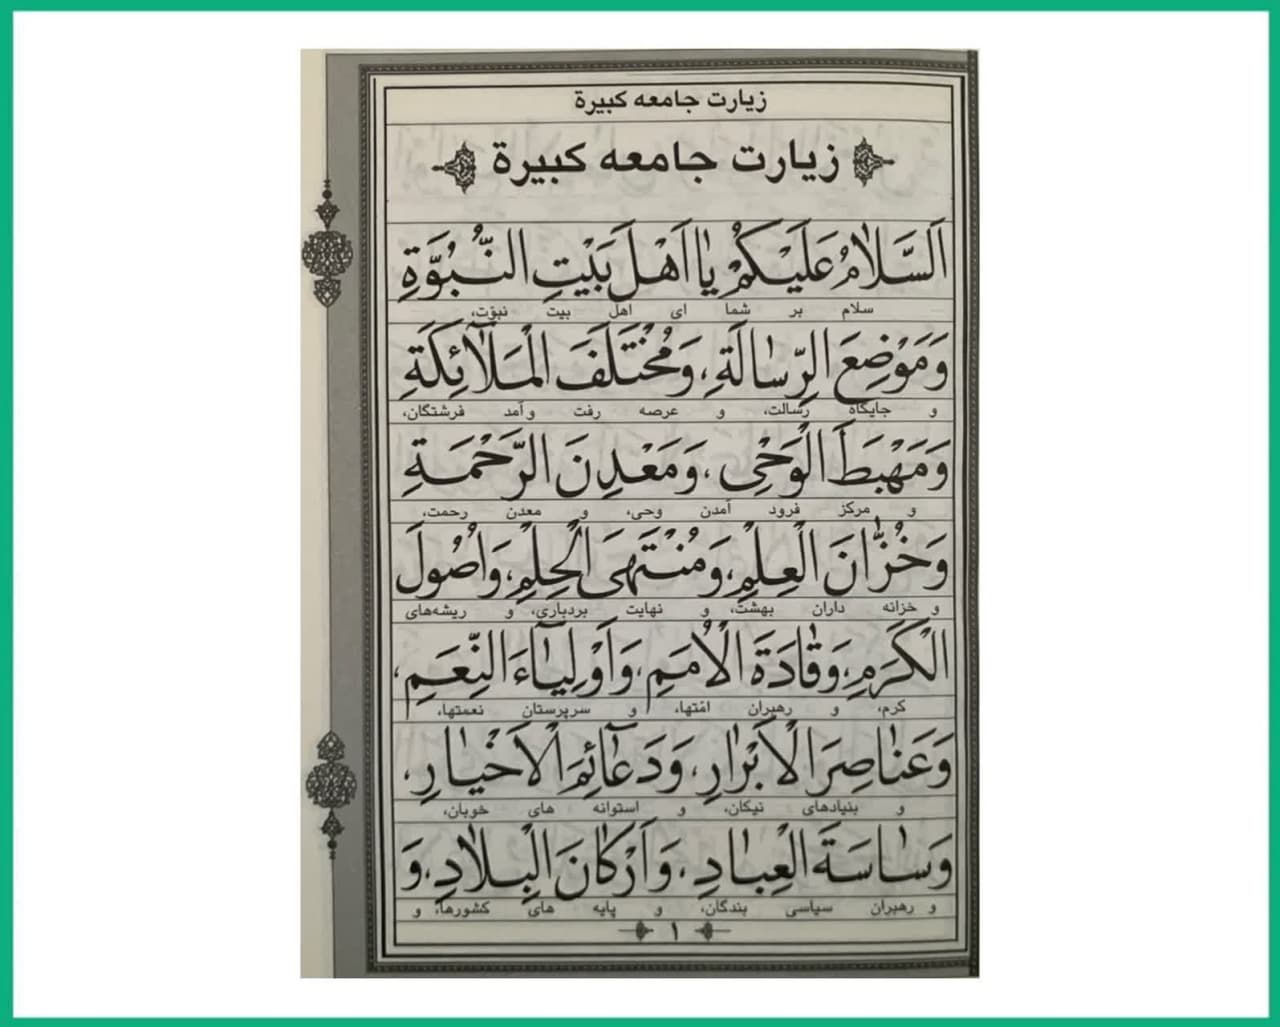 زیارت جامعه کبیرة
زیارت جامعه کبیرة
اَلسَّلٰامُ عَلَيْكُمْ يٰا اَهْلَ بَيْتِ النُّبُوَّةِ
سلام بر شما ای اهل بیت نبوّت،
وَ مَوْضِعَ الرِّسٰالَةِ، وَ مُخْتَلَفَ الْمَلآئِكَةِ
و جایگاه رسالت، و عرصه رفت و آمد فرشتگان،
وَ مَهْبِطَ الْوَحْىِ، وَ مَعْدِنَ الرَّحْمَةِ
و مرکز فرود آمدن وحی، و معدن رحمت،
وَ خُزّٰانَ الْعِلْمِ، وَ مُنْتَهَى الْحِلْمِ، وَ اُصُولَ
و خزانه داران بهشت، و نهایت بردباری، و ریشه‌های
الْكَرَمِ، وَ قٰادَةَ الْاُمَمِ، وَ اَوْلِيٰآءَ النِّعَمِ،
کرم، و رهبران امّتها، و سرپرستان نعمتها،
وَ عَنٰاصِرَ الْاَبْرٰارِ، وَ دَعٰآئِمَ الْاَخْيٰارِ،
و بنیادهای نیکان، و استوانه های خوبان،
وَ سٰاسَةَ الْعِبٰادِ، وَ اَرْكٰانَ الْبِلٰادِ، وَ
و رهبران سیاسی بندگان، و پایه های کشورها، و
۱